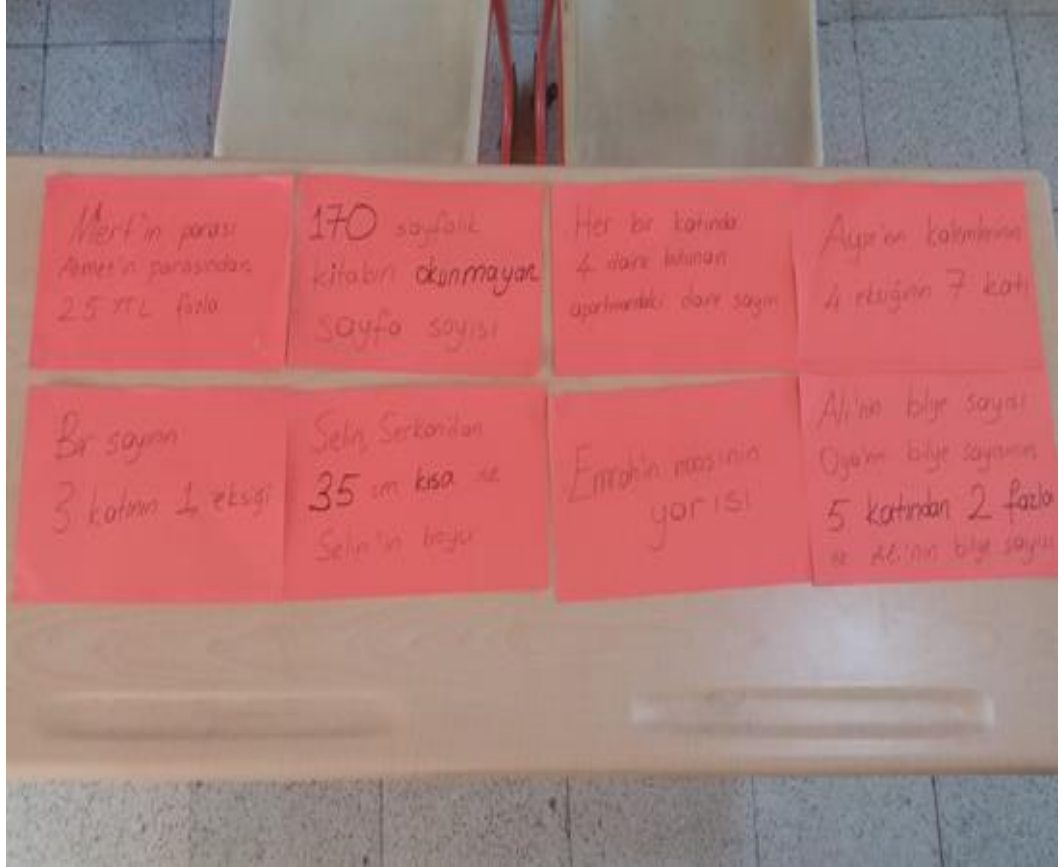 Mert'in parası
Ahmet'in parasından
25 TL fazla
170 sayfalık
kitabın okunmayan
sayfa sayısı
Her bir katında
4 daire bulunan
apartmandaki daire sayısı
Ayşe'nin kalemlerinin
4 eksiğinin 7 katı
Bir sayının
3 katının 1 eksiği
Selin, Serkan'dan
35 cm kısa ise
Selin'in boyu
Emrah'ın
yarısı
Ali'nin bilye sayısı
Oya'nın bilye sayısının
5 katından 2 fazla
ise Ali'nin bilye sayısı